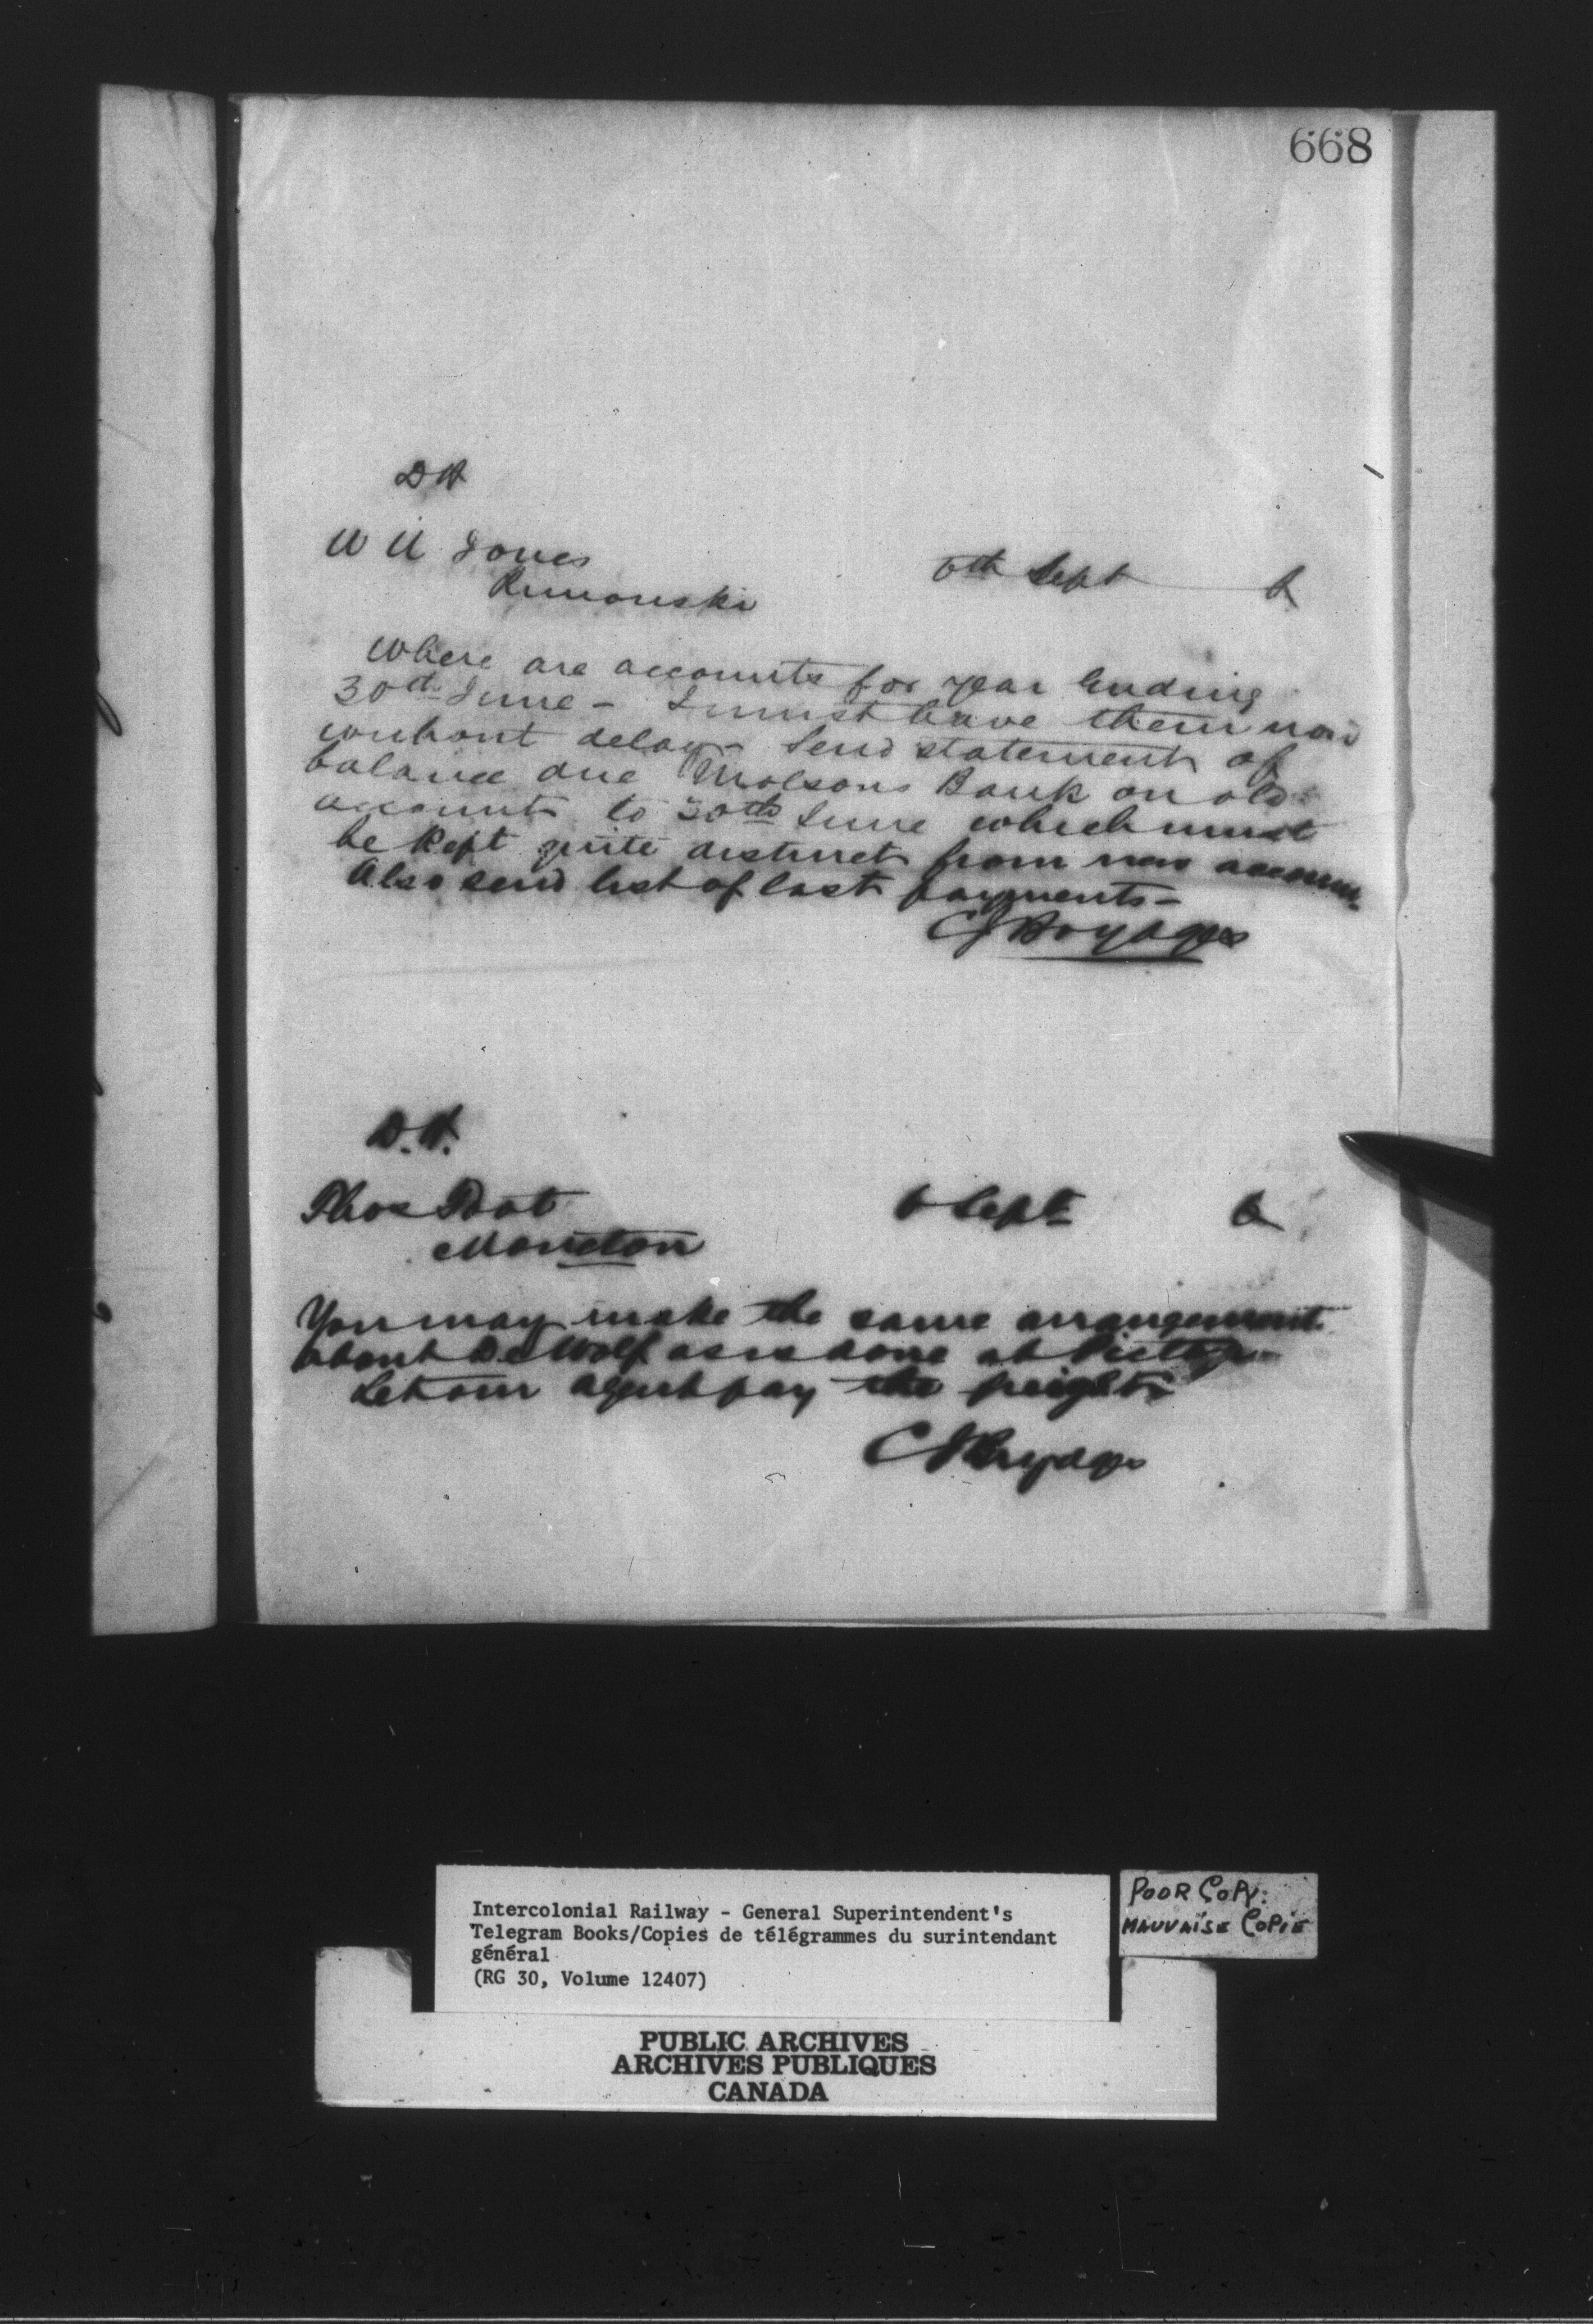 668
DH
W H Jones
Rimouski
6th Sept
Where are accounts for year Ending
30th June - I must have them now
without delay - Send statement of
balance due Molsons Bank on old
account to 30th June which must
be kept quite distinct from new account
Also send list of last payments -
CJ Brydges
D.H.
Thos Foot
Moncton
6 Sept
You may make the same arrangement
about DeWolf as is done at Pictou
Let our agent pay the freight
CJ Brydges
Intercolonial Railway - General Superintendent's
Telegram Books/Copies de télégrammes du surintendant
général
(RG 30, Volume 12407)
POOR COPY.
MAUVAISE COPIE
PUBLIC ARCHIVES
ARCHIVES PUBLIQUES
CANADA